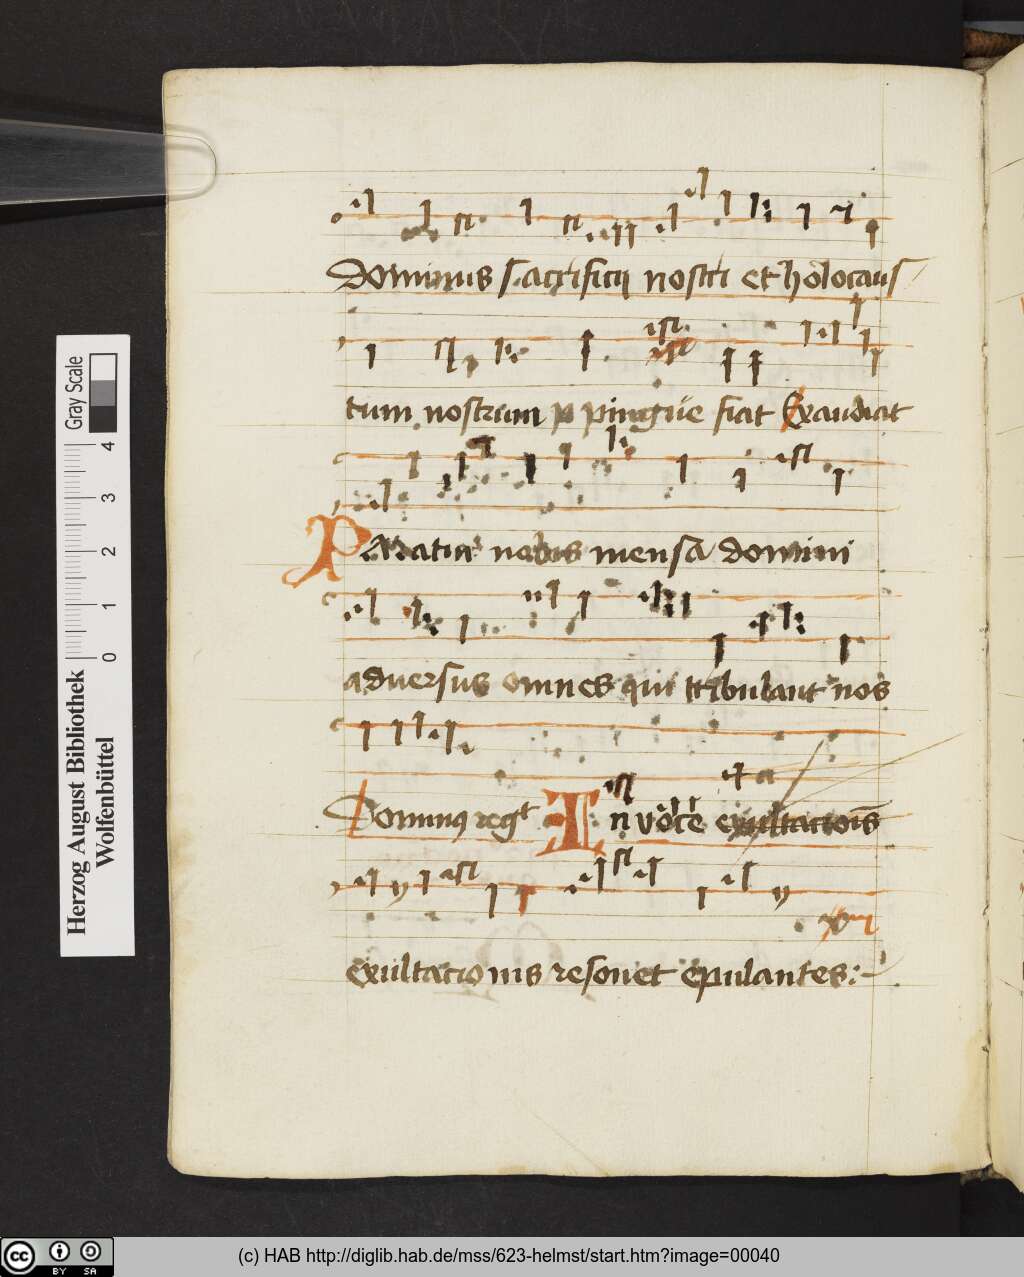 Dominus sacrificii nostri et holocaus
tum nostrum pingue fiat Exaudiat
Parata nobis mensa domini
adversus omnes qui tribulant nos
Dominus regit In voce exultationis
exultationis resonet epulantes:
Gray Scale
4 3 2 1 0
Herzog August Bibliothek
Wolfenbüttel
cc BY SA
(c) HAB http://diglib.hab.de/mss/623-helmst/start.htm?image=00040